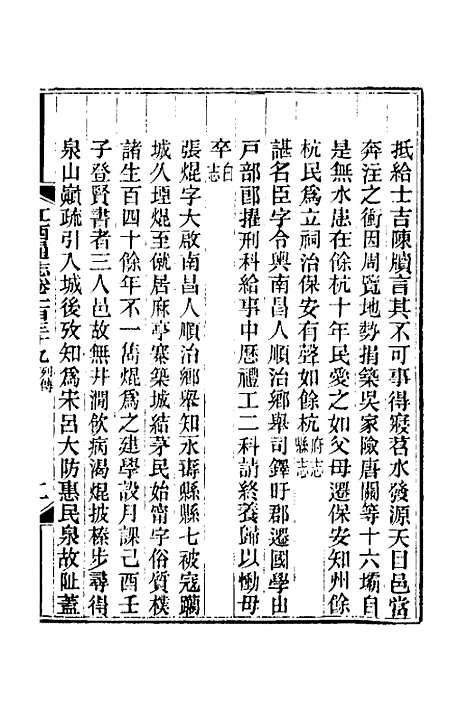 抵給士吉陳牘言其不可事得寢苕水發源天目邑當
奔注之衝因周覽地勢捐築吳家險唐關等十六壩自
是無水患在餘杭十年民愛之如父母遷保安知州餘
杭民為立祠治保安有聲如餘杭府志縣志
諶名臣字令興南昌人順治鄉舉司鐸盱郡遷國學由
戸部郎擢刑科給事中歷禮工二科請終養歸以慟母
卒白志
張焜字大啟南昌人順治鄉舉知永壽縣縣七被寇躪
城久堙焜至僦居麻亭寨築城結茅民始甯宇俗質樸
諸生百四十餘年不一雋焜為之建學設月課己酉壬
子登賢書者三人邑故無井澗飲病渴焜披榛步尋得
泉山巔疏引入城後攷知為宋呂大防惠民泉故阯蓋
江西通志卷一百三十九 列傳